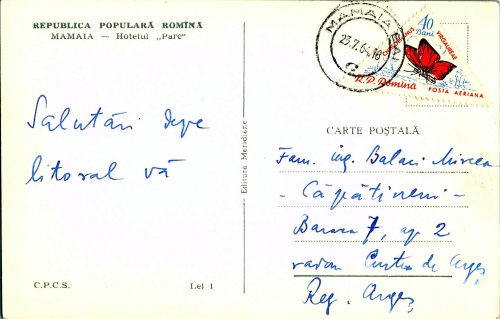 REPUBLICA POPULARĂ ROMÎNĂ
MAMAIA — Hotelul „Parc"
Salutări depe
litoral vă
C.P.C.S.
Lei 1
Editura Meridiane
MAMAIA BĂI
23.7.64.18
40
Bani
R.P. Romina
POSTA AERIANA
CARTE POȘTALĂ
Fam. ing. Balaci Mircea
- Căpățineni -
Baraca 7, ap 2
raion Curtea de Argeș
Reg. Argeș